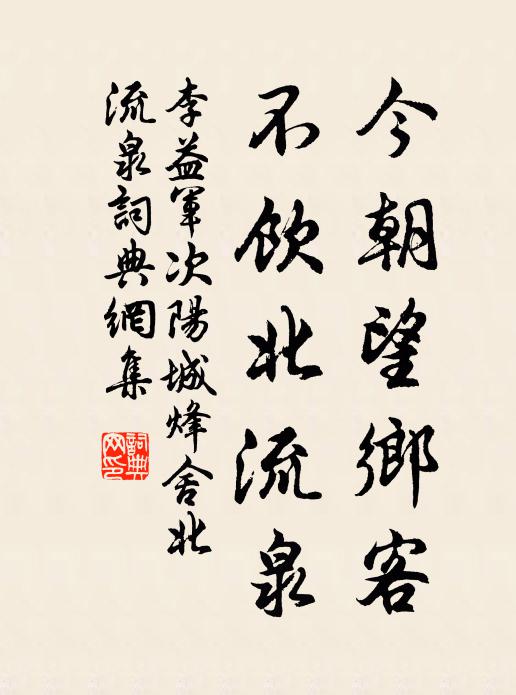 今朝望鄉客
不飲北流泉
李益軍次陽城烽舍北
流泉詞典網集
詞典
网印